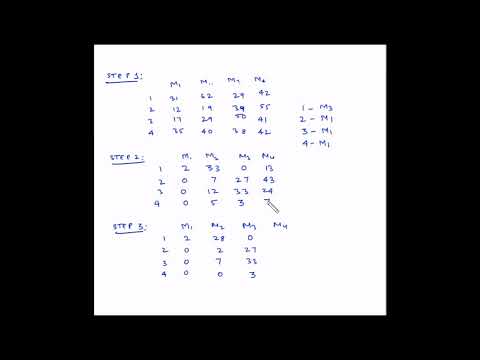 STEP 1:
M1 M2 M3 M4
1 31 62 29 42
2 12 19 39 55
3 17 29 50 41
4 35 40 38 42
1 - M3
2 - M1
3 - M1
4 - M1
STEP 2:
M1 M2 M3 M4
1 2 33 0 13
2 0 7 27 43
3 0 12 33 24
4 0 5 3 7
STEP 3:
M1 M2 M3 M4
1 2 28 0
2 0 2 27
3 0 7 33
4 0 0 3